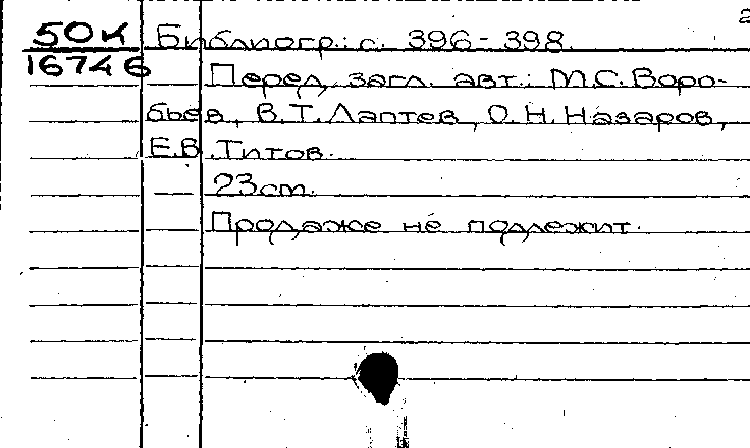 2
50К Библиогр.: с. 396-398.
16746 Перед загл. авт.: М.С. Воро-
бьев, В.Т. Лаптев, О.Н. Назаров,
Е.В. Титов.
23см.
Продаже не подлежит.